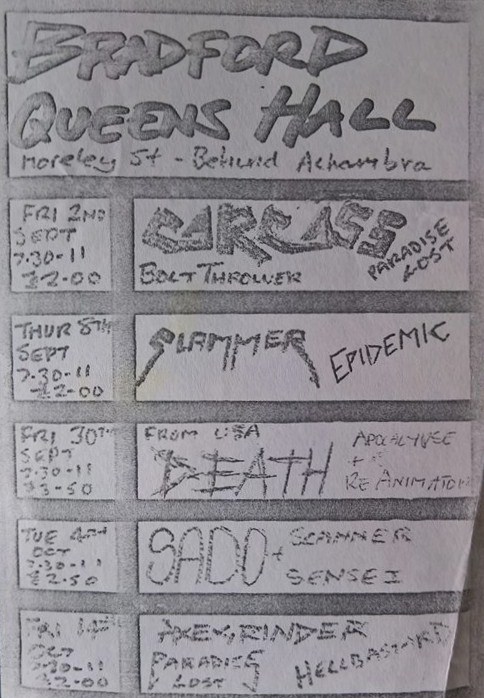 BRADFORD
QUEENS HALL
Moreley St - Behind Alhambra
FRI 2ND
SEPT
7.30-11
£2.00
CARCASS
PARADISE
LOST
BOLT THROWER
THUR 8TH
SEPT
7.30-11
£2-00
SLAMMER
EPIDEMIC
FRI 30TH
SEPT
7.30-11
£3-50
FROM USA
DEATH
APOCALYPSE
+
RE ANIMATOR
TUE 4TH
OCT
7.30-11
£2.50
SADO + SCANNER
SENSEI
FRI 14TH
OCT
7.30-11
£2.00
AXEGRINDER
PARADISE
LOST
HELLBASTARD